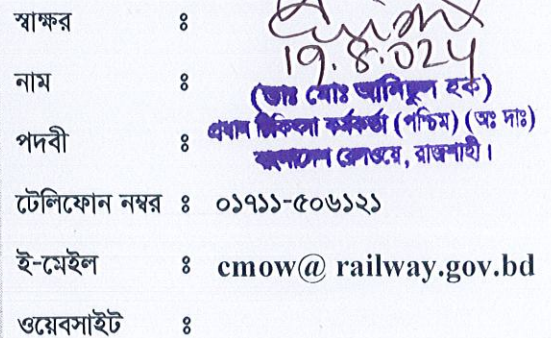 স্বাক্ষর ঃ
19.8.024
নাম ঃ (ডাঃ মোঃ আনিছুল হক)
পদবী ঃ প্রধান চিকিৎসা কর্মকর্তা (পশ্চিম) (অঃ দাঃ)
বাংলাদেশ রেলওয়ে, রাজশাহী।
টেলিফোন নম্বর ঃ ০১৭১১-৫০৬১২১
ই-মেইল ঃ cmow@ railway.gov.bd
ওয়েবসাইট ঃ